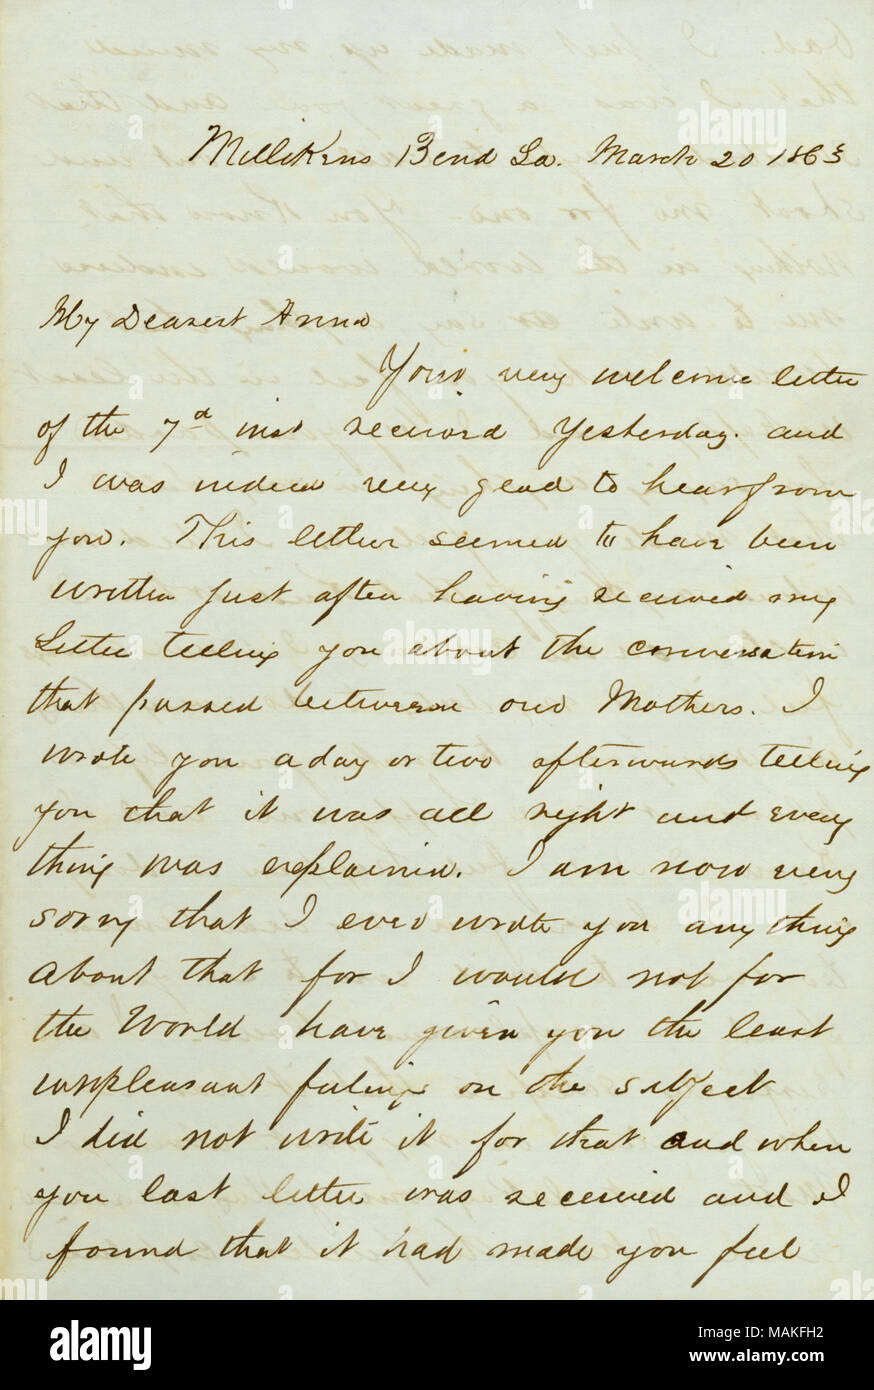 Millikens Bend La. March 20 1863
My Dearest Anna
Your very welcome letter
of the 7d inst received Yesterday. and
I was indeed very glad to hear from
you. This letter seemed to have been
written just after having received my
Letter telling you about the conversation
that passed between our Mothers. I
wrote you a day or two afterwards telling
you that it was all right and every
thing was explained. I am now very
sorry that I ever wrote you any thing
about that for I would not for
the World have given you the least
unpleasant feelings on the subject
I did not write it for that and when
you last letter was received and I
found that it had made you feel
alamy
Image ID: MAKFH2
www.alamy.com